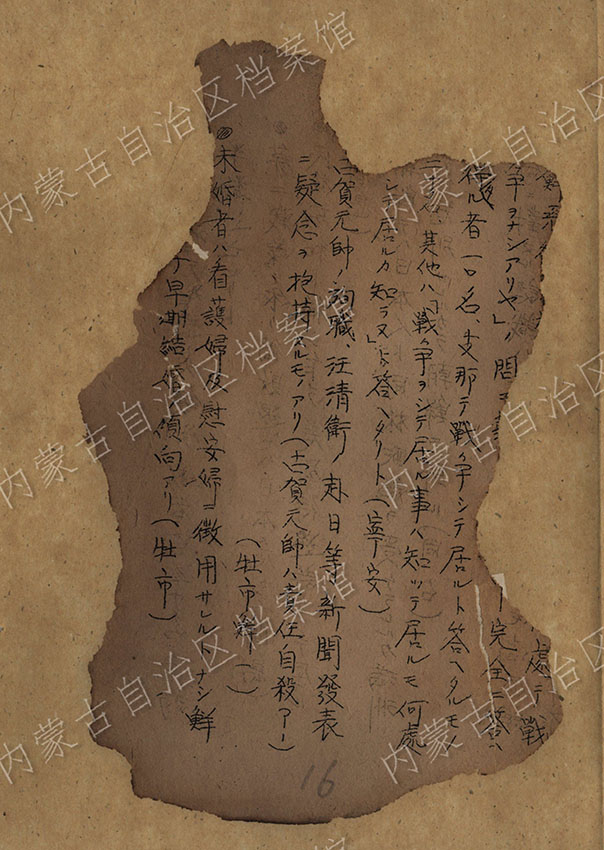 處テ戰
争ヲナシアリヤ」ノ問
完全ニ答ヘ
得ル者一〇名、支那テ戰争シテ居ルト答ヘタルモノ
其他ハ「戰争ヲシテ居ル事ハ知ッテ居ルモ何處
シテ居ルカ知ラヌ」ト答ヘタリト(寧安)
古賀元帥ノ殉職、汪清衛ノ赴日等ノ新聞發表
ニ疑念ヲ抱持スルモノアリ(古賀元帥ハ責任自殺アー)
(牡市鮮ー)
◎未婚者ハ看護婦及慰安婦ニ徴用サレルトナシ鮮
早期結婚ノ傾向アリ(牡市)
16
内蒙古自治区档案馆